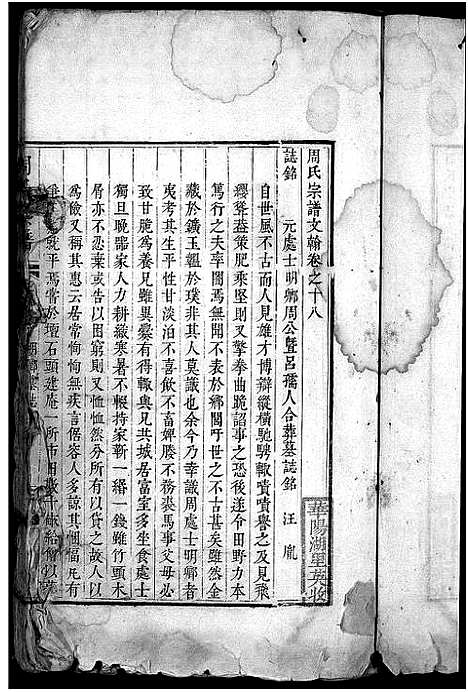 周氏宗譜文翰卷之十八
誌銘
元處士明鄉周公暨呂孺人合葬墓誌銘 汪胤
自世風不古而人見雄才博辯縱橫馳騁輒嘖嘖譽之及見飛
纓聳葢策肥乘堅則又擎拳曲跪諂事之恐後遂令田野力本
篤行之夫幸闇焉無聞不表於鄉閭吁世之不古甚矣雖然金
藏於鑛玉韞於璞非其人莫識也余今乃幸識周處士明鄉者
夷考其生平性甘淡泊不喜飲不畜婢媵不務裘馬事父母必
致甘脆為養兄雖異爨有得輒與兄共城居富室多坐食處士
獨且晩臨家人力耕線寒暑不輟持家靳一緡一錢雖竹頭木
屑亦不忍棄或告以困窮則又恤恤然分所以貸之故人
為儉又稱其惠云居常恂恂無疾言倨容人多諒其悃愊凡有
就平焉嘗於壇石頭建庵一所市田數十畝給僧以
華陽湖里